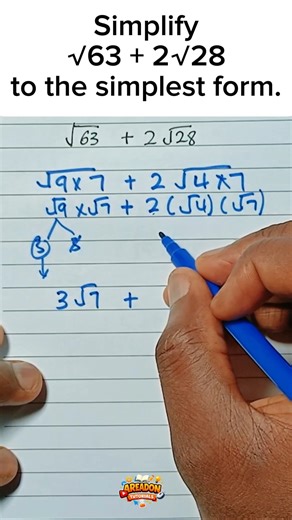 Simplify
√63 + 2√28
to the simplest form.
√63 + 2√28
√9x7 + 2√4x7
√9 x √7 + 2(√4)(√7)
3
3√7 +
AREADON
TUTORIALS